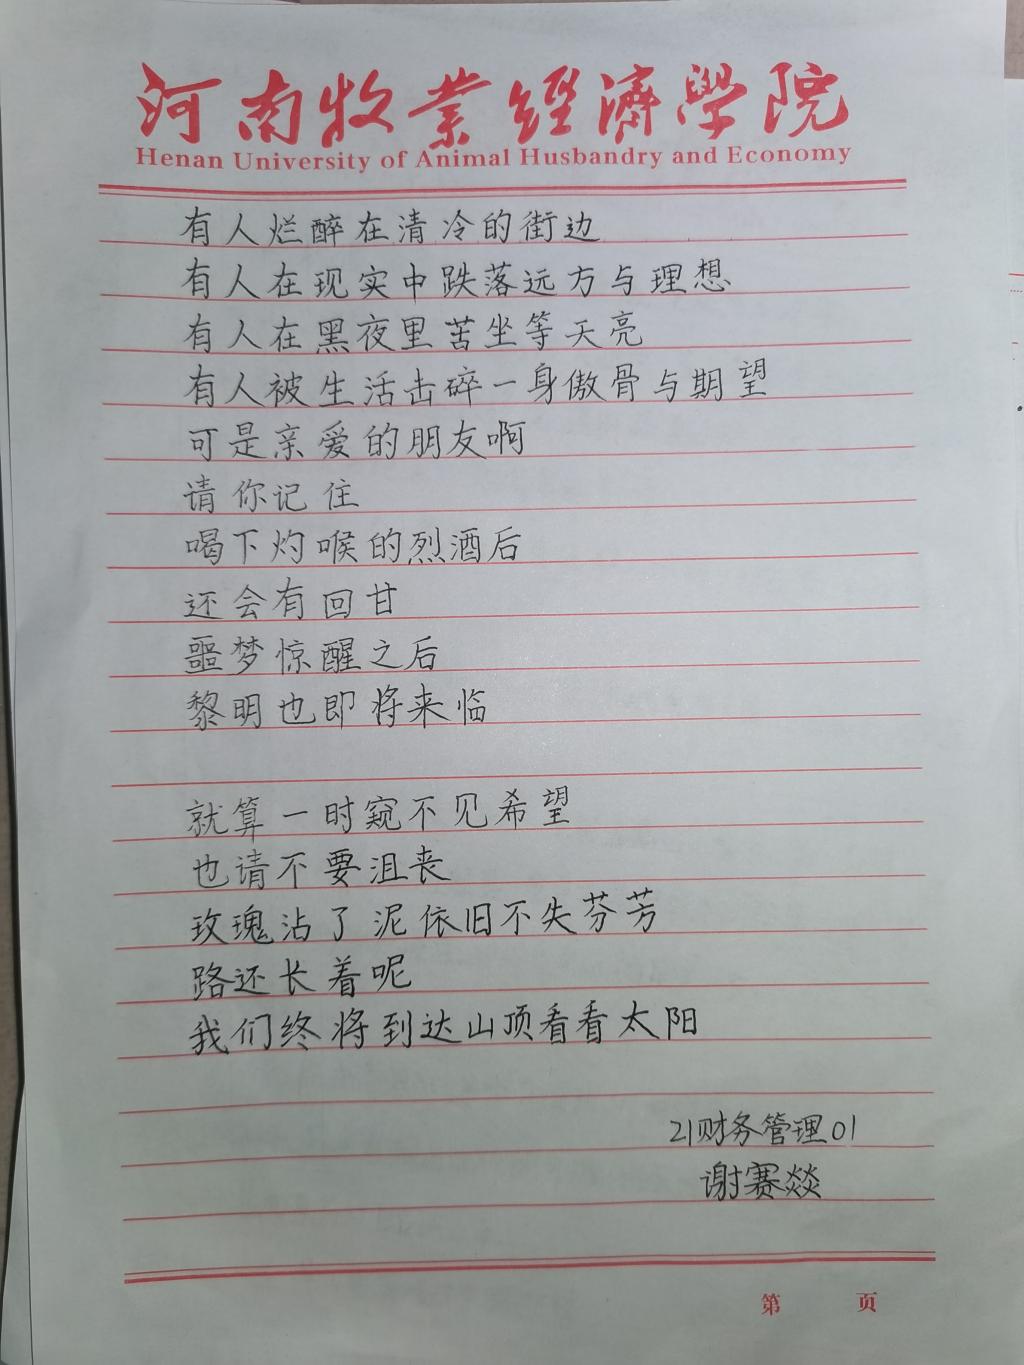 河南牧業經濟學院
Henan University of Animal Husbandry and Economy
有人烂醉在清冷的街边
有人在现实中跌落远方与理想
有人在黑夜里苦坐等天亮
有人被生活击碎一身傲骨与期望
可是亲爱的朋友啊
请你记住
喝下灼喉的烈酒后
还会有回甘
噩梦惊醒之后
黎明也即将来临
就算一时窥不见希望
也请不要沮丧
玫瑰沾了泥依旧不失芬芳
路还长着呢
我们终将到达山顶看看太阳
21财务管理01
谢赛燚
第 页